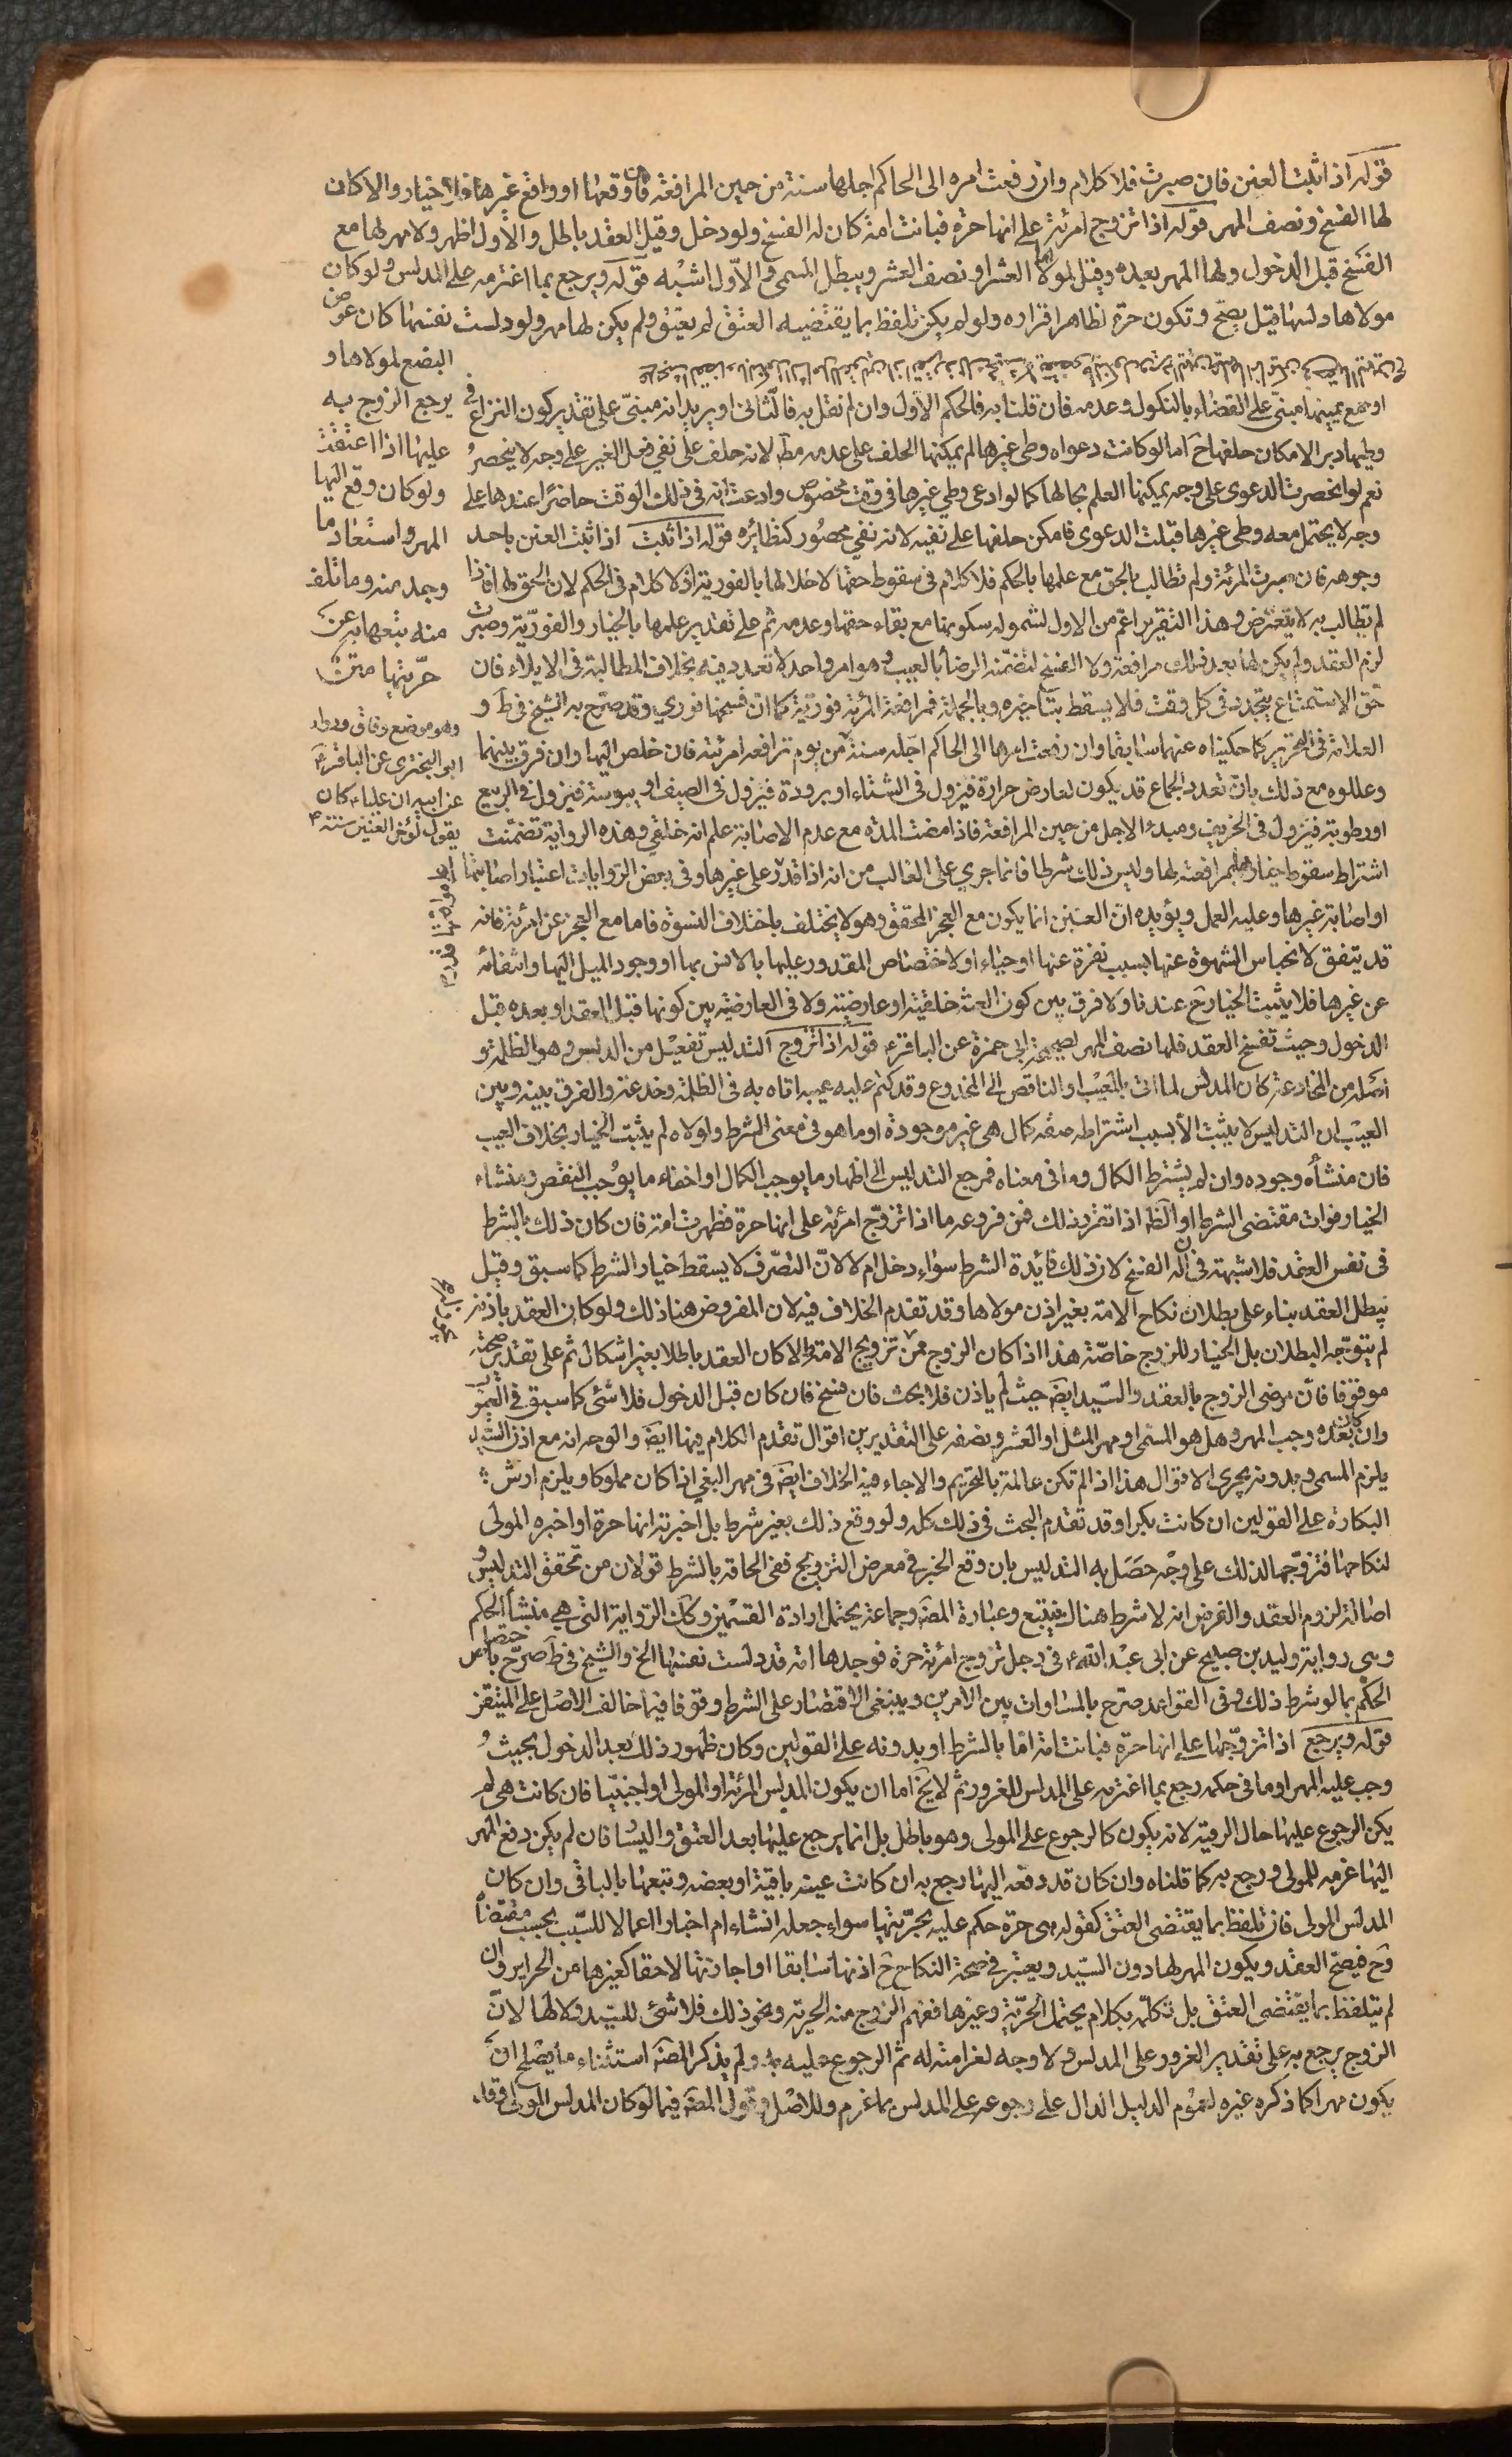 قوله اذا ثبت العنن فان صبرت فلا كلام وان رفعت امره الى الحاكم اجلها سنة من حين المرافعة فان وقعها او واقع غيرها فلا خيار والا كان
لها الفسخ ونصف المهر قوله اذا تزوج امرئة على انها حرة فبانت امة كان له الفسخ ولو دخل وقيل العقد باطل والاول اظهر ولا مهر لها مع
الفسخ قبل الدخول ولها المهر بعده وقيل لمولاها العشر او نصف العشر ويبطل المسمى والاول اشبه قوله ويرجع بما اغترمه على المدلس ولو كان
مولاها دلسها قيل يصح وتكون حرة لظاهر اقراره ولو لم يكن تلفظ بما يقتضيه العتق لم يعتق ولم يكن لها مهر ولو دلست نفسها كان عوض
البضع لمولاها و
يرجع الزوج به
عليها اذا اعتقت
ولو كان وقع اليها
المهر استعاد ما
وجد منه وما تلف
منه يتبعها به عند
حريتها متن
او مع يمينها مبنى على القضاء بالنكول وعدمه فان قلنا به فالحكم الاول وان لم نقل به فالثانى او يريد انه مبنى على تقدير كون النزاع فى
وطيها دبر الامكان حلفها ح اما لو كانت دعواه وطى غيرها لم يمكنها الحلف على عدمه مط لانه حلف على نفى فعل الغير على وجه لا ينحصر
نعم لو انحصرت الدعوى على وجه يمكنها العلم بحالها كما لو ادعى وطي غيرها فى وقت مخصوص وادعت انه فى ذلك الوقت حاضرا عندها على
وجه لا يحتمل معه وطى غيرها قبلت الدعوى فامكن حلفها على نفيه لانه نفى محصور كنظائره قوله اذا ثبت اذا ثبت العنن باحد
وجوهه فان صبرت المرئة ولم تطالب بالحق مع علمها بالحكم فلا كلام فى سقوط حقها لاخلالها بالفورية اذ لا كلام فى الحكم لان الحق لها فاذا
لم يطالب به لا يتعرض وهذا التقرير اعم من الاول لشموله سكوتها مع بقاء حقها وعدمه ثم على تقدير علمها بالخيار والفورية وصبرت
لزم العقد ولم يكن لها بعد ذلك مرافعة ولا الفسخ لتضمنه الرضا بالعيب وهو امر واحد لا تعدد فيه بخلاف المطالبة فى الايلاء فان
حق الاستمتاع يتجدد فى كل وقت فلا يسقط بتاخيره وبالجملة فمرافعة المرئة فورية كما ان فسخها فوري وقد صرح به الشيخ فى ط و
العلامة فى التحرير كما حكيناه عنهما سابقا وان رفعت امرها الى الحاكم اجله سنة من يوم ترافعه امرئته فان خلص اليها وان فرق بينهما
وعللوه مع ذلك بان تعدد الجماع قد يكون لعارض حرارة فيزول فى الشتاء او برودة فيزول فى الصيف او يبوسة فيزول فى الربيع
او رطوبة فيزول فى الخريف ومبدء الاجل من حين المرافعة فاذا مضت المدة مع عدم الاصابة علم انه خلقي وهذه الرواية تضمنت
وهو موضع وفاق وروا
ابو البختري عن الباقر ع
عن ابيه ان عليا ع كان
يقول يؤخر العنين سنة
اشتراط سقوط خيارها بمرافعته لها وليس ذلك شرطا فانما جري على الغالب من انه اذا قدر على غيرها وفى بعض الروايات اعتبار اصابتها
او اصابة غيرها وعليه العمل ويؤيده ان العنين انما يكون مع العجز المحقق وهو لا يختلف باختلاف النسوة فاما مع العجز عن امرئة فانه
قد يتفق لانحباس الشهوة عنها بسبب نفرة عنها او حياء او لاختصاص المقدور عليها بالانس بها او وجود الميل اليها وانتفائه
عن غيرها فلا يثبت الخيار ح عندنا ولا فرق بين كون العنة خلقية او عارضية ولا فى العارضية بين كونها قبل العقد او بعده قبل
الدخول وحيث تفسخ العقد فلها نصف المهر لصحيحة ابى حمزة عن الباقر ع قوله اذا تزوج التدليس تفعيل من الدلس وهو الظلمة و
اصله من المخادعة كان المدلس لما اتى بالمعيب او الناقص الى المخدوع وقد كتم عليه عيبه اتاه به فى الظلمة وخدعه والفرق بينه وبين
العيب ان التدليس لا يثبت الا بسبب اشتراطه صفة كمال هى غير موجودة او ما هو فى معنى الشرط ولولاه لم يثبت الخيار بخلاف العيب
فان منشأه وجوده وان لم يشترط الكمال وما فى معناه فمرجع التدليس الى اظهار ما يوجب الكمال او اخفاء ما يوجب النقص ومنشاء
الخيار فوات مقتضى الشرط او الظ اذا تقرر ذلك فمن فروعه ما اذا تزوج امرئة على انها حرة فظهرت امة فان كان ذلك بالشرط
فى نفس العقد فلا شبهة فى ان له الفسخ لان ذلك فائدة الشرط سواء دخل ام لا لان التصرف لا يسقط خيار الشرط كما سبق وقيل
يبطل العقد بناء على بطلان نكاح الامة بغير اذن مولاها وقد تقدم الخلاف فيه لان المفروض هنا ذلك ولو كان العقد باذنه
لم يتوجه البطلان بل الخيار للزوج خاصة هذا اذا كان الزوج ممن تزويج الامة والا كان العقد باطلا بغير اشكال ثم على تقدير صحته
موقوفا فان رضى الزوج بالعقد والسيد ايض حيث لم ياذن فلا بحث فان فسخ فان كان قبل الدخول فلا شئ كما سبق فى العيوب
وان كان بعده وجب المهر وهل هو المسمى او مهر المثل او العشر ونصفه على التقديرين اقوال تقدم الكلام فيها ايض والوجه انه مع اذن السيد
يلزم المسمى وبدونه يجرى الاقوال هذا اذا لم تكن عالمة بالتحريم والا جاء فيه الخلاف ايض فى مهر البغي اذا كان مملوكا ويلزم ارش
البكارة على القولين ان كانت بكرا وقد تقدم البحث فى ذلك كله ولو وقع ذلك بغير شرط بل اخبرته انها حرة او اخبره المولى
لنكاحها فتزوجها لذلك على وجه حصل به التدليس بان وقع الخبر فى معرض التزويج ففى الحاقه بالشرط قولان من تحقق التدليس و
اصالة لزوم العقد والفرض انه لا شرط هناك فيتبع وعبارة المص وجماعة يحتمل ارادة القسمين وكك الرواية التى هى منشأ الحكم
وهى رواية وليد بن صبيح عن ابى عبد الله ع فى رجل تزوج امرئة حرة فوجدها امة قد دلست نفسها الخ والشيخ فى ط صرح باختصاص
الحكم بما لو شرط ذلك وفى القواعد صرح بالمساوات بين الامرين وينبغى الاقتصار على الشرط وقوفا فيما خالف الاصل على المتيقن
قوله ويرجع اذا تزوجها على انها حرة فبانت امة اما بالشرط او بدونه على القولين وكان ظهور ذلك بعد الدخول بحيث
وجب عليه المهر او ما فى حكمه رجع بما اغترمه على المدلس للغرور ثم لا يخ اما ان يكون المدلس المرئة او المولى او اجنبيا فان كانت هى لم
يكن الرجوع عليها حال الرقية لانه يكون كالرجوع على المولى وهو باطل بل انما يرجع عليها بعد العتق واليسار فان لم يكن دفع المهر
اليها غرمه للمولى ورجع به كما قلناه وان كان قد دفعه اليها رجع به ان كانت عينه باقية او بعضه وتبعها بالباقى وان كان
المدلس المولى فان تلفظ بما يقتضى العتق كقوله هى حرة حكم عليه بحريتها سواء جعله انشاء ام اخبارا اعمالا للسبب بحسب مقتضاه
وح فيصح العقد ويكون المهر لها دون السيد ويعتبر فى صحة النكاح ح اذنها سابقا او اجازتها لاحقا كغيرها من الحراير وان
لم يتلفظ بما يقتضى العتق بل تكلم بكلام يحتمل الحرية وغيرها ففهم الزوج منه الحرية ونحو ذلك فلا شئ للسيد ولا لها لان
الزوج يرجع به على تقدير الغرور على المدلس ولا وجه لغرامته له ثم الرجوع عليه به ولم يذكر المص استثناء ما يصلح ان
يكون مهرا كما ذكره غيره لعموم الدليل الدال على رجوعه على المدلس بما غرم وللاصل وقول المص فيما لو كان المدلس المولى